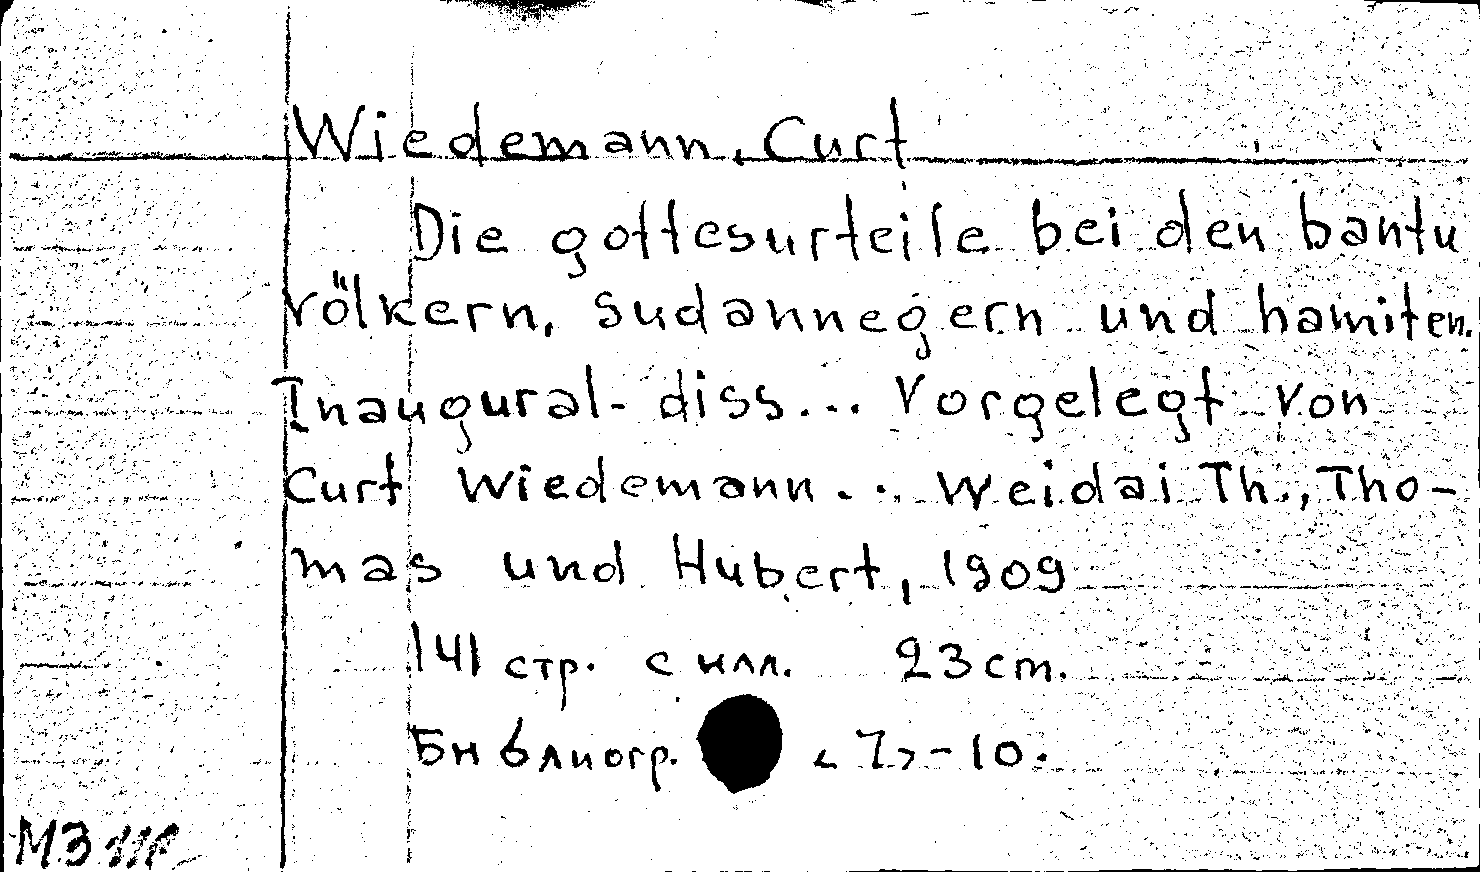 Wiedemann, Curt
Die gottesurteile bei den bantu
völkern, sudannegern und hamiten.
Inaugural-diss... Vorgelegt von
Curt Wiedemann... Weidai Th., Tho-
mas und Hubert, 1909
141 стр. с илл. 23 cm.
Библиогр. <7>-10.
МЗ